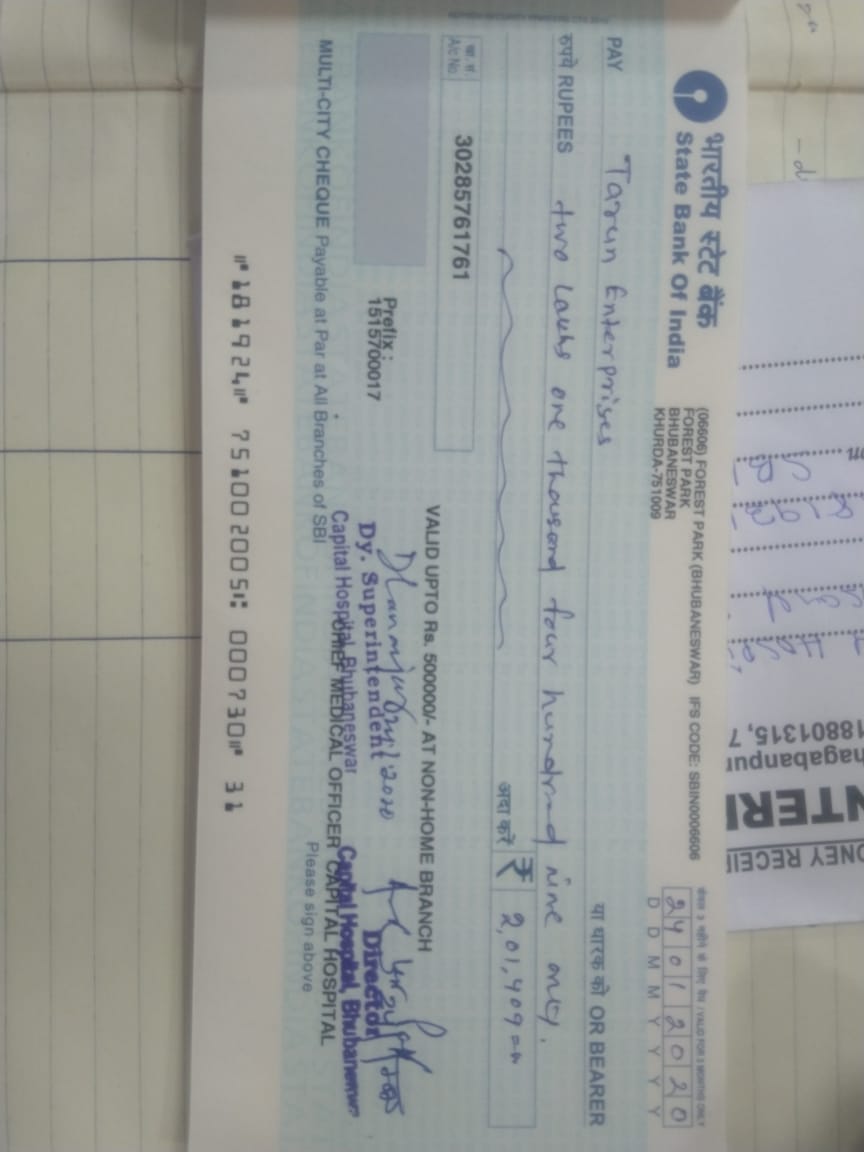 भारतीय स्टेट बैंक
State Bank Of India
(06606) FOREST PARK (BHUBANESWAR) IFS CODE: SBIN0006606
FOREST PARK
BHUBANESWAR
KHURDA-751009
VALID FOR 3 MONTHS ONLY
24012020
D D M M Y Y Y Y
PAY Tarun Enterprises
या धारक को OR BEARER
रुपये RUPEES two Lakhs one thousand four hundred nine only.
अदा करें ₹ 2,01,409=00
खा. सं.
A/c No.
30285761761
VALID UPTO Rs. 500000/- AT NON-HOME BRANCH
Prefix :
1515700017
Dy. Superintendent
Capital Hospital, Bhubaneswar
Director
Capital Hospital, Bhubaneswar
CHIEF MEDICAL OFFICER CAPITAL HOSPITAL
MULTI-CITY CHEQUE Payable at Par at All Branches of SBI
Please sign above
⑈181924⑈ 751002005⑆ 000730⑈ 31
ONEY RECEI
NTER
hagabanpur
18801315, 7